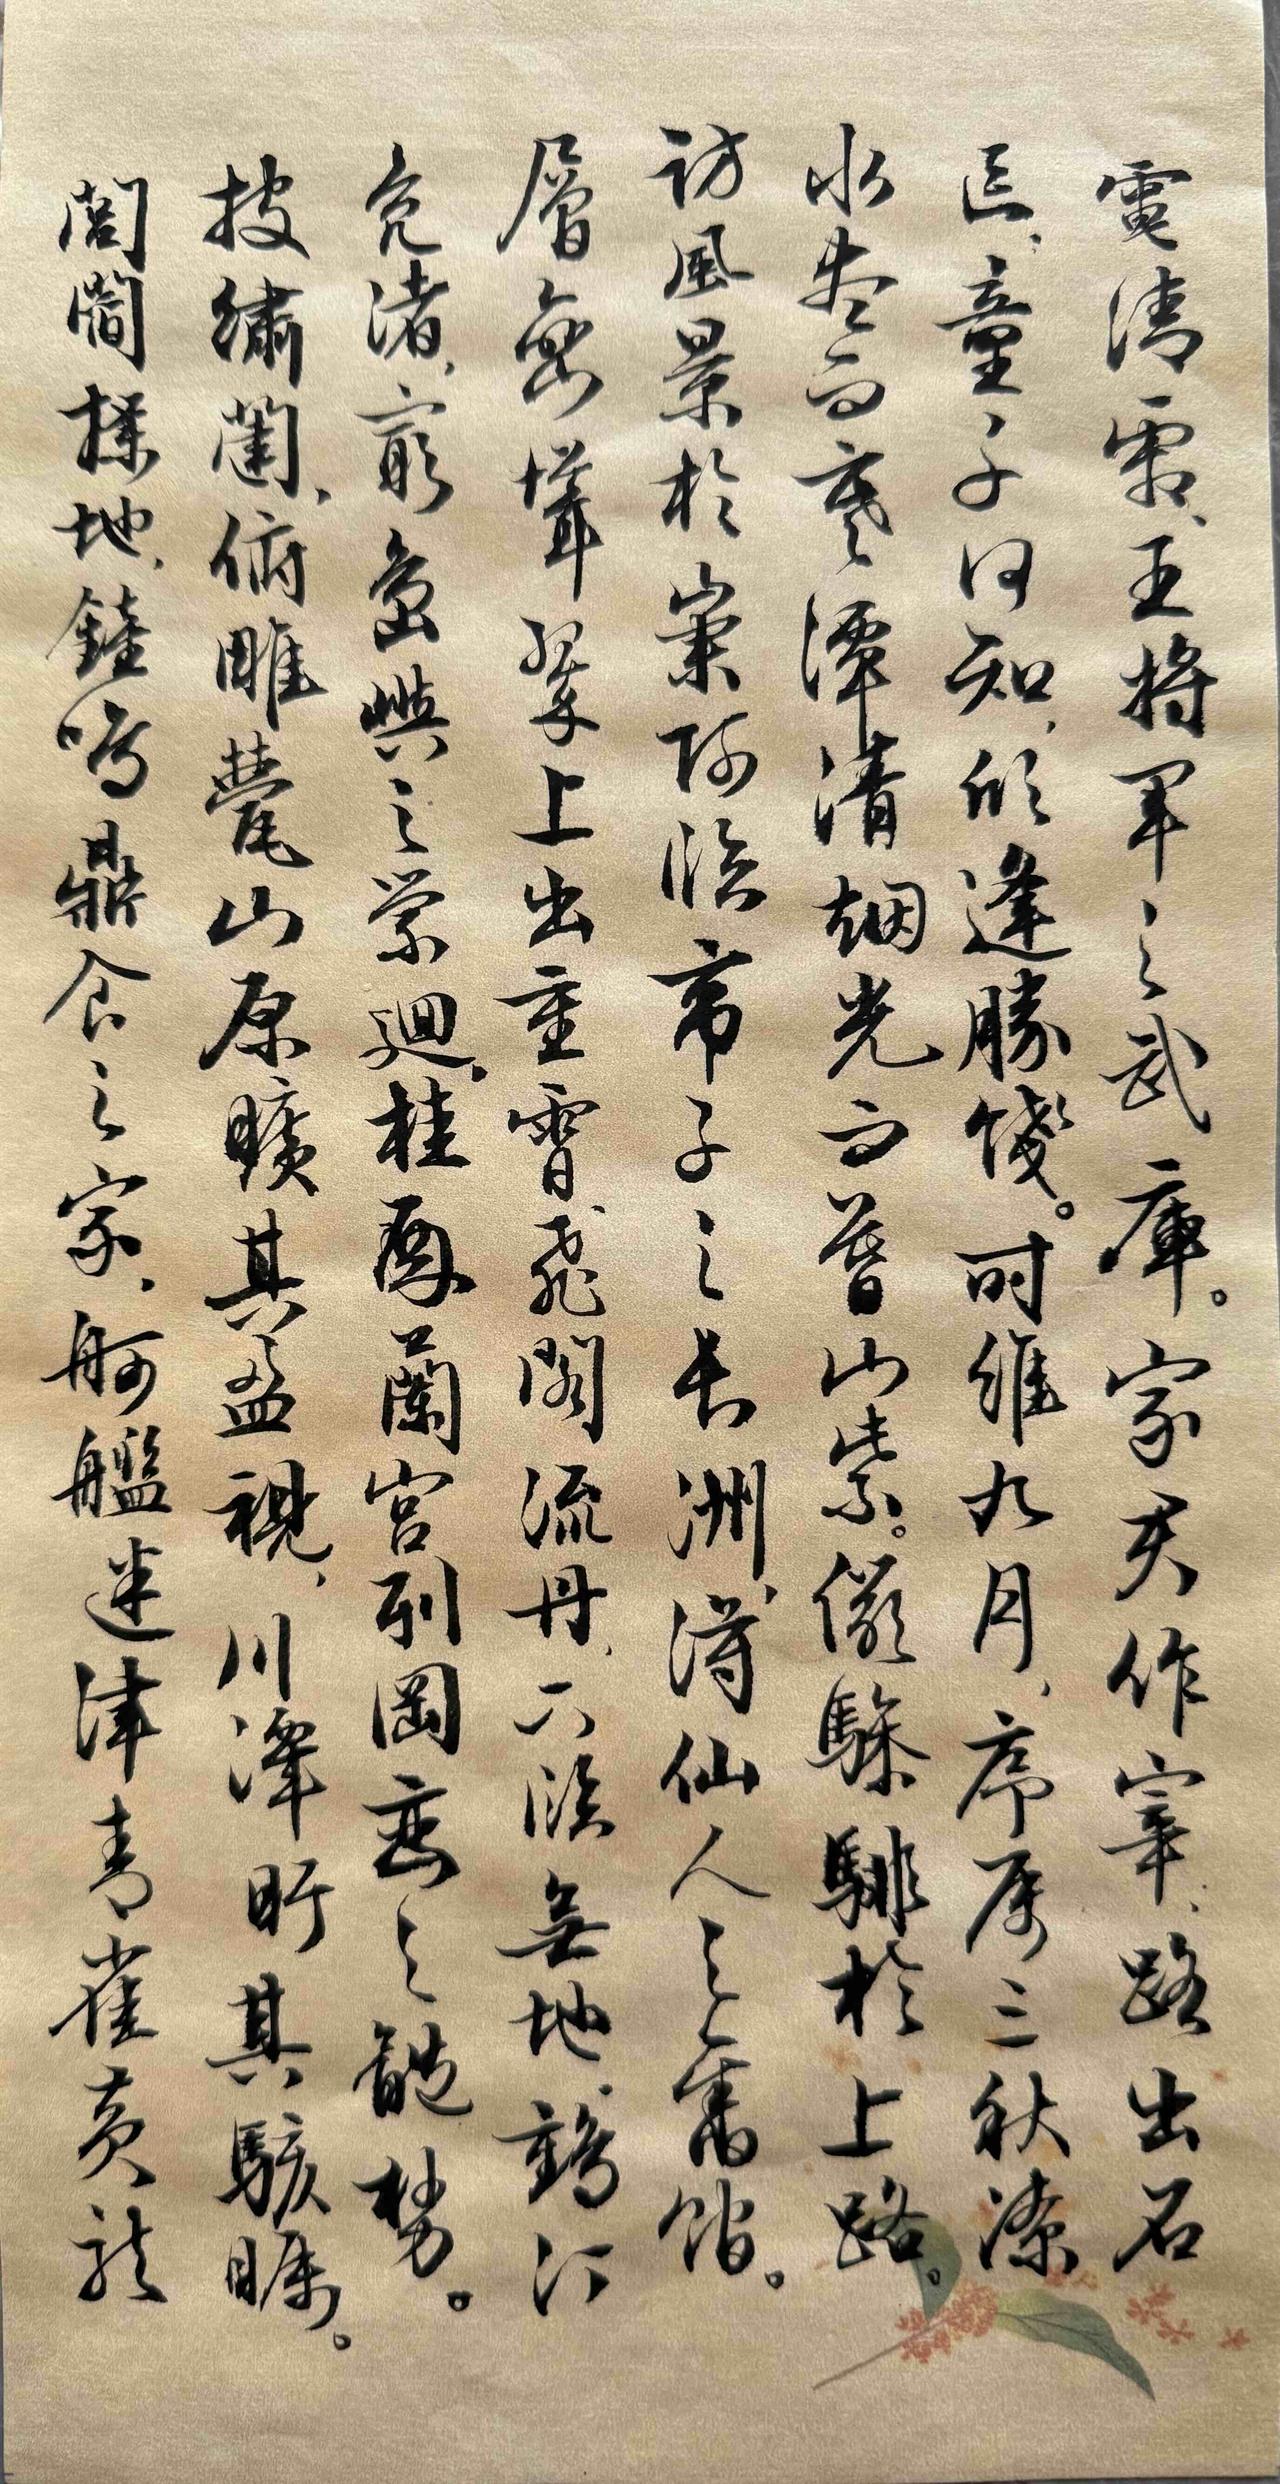 電清霜、王將軍之武庫。家君作宰、路出名
區、童子何知、欣逢勝餞。时維九月、序属三秋潦
水尽而寒潭清烟光而暮山紫。儼驂騑於上路。
訪風景於崇阿臨帝子之長洲、得仙人之舊館。
層巒聳翠上出重霄、飛閣流丹、下臨無地、鶴汀
鳧渚、窮島嶼之縈迴、桂殿蘭宮列岡巒之體勢。
披繡闥、俯雕甍山原曠其盈視、川澤盱其駭矚。
閭閻撲地、鐘鳴鼎食之家、舸艦迷津青雀黄龍